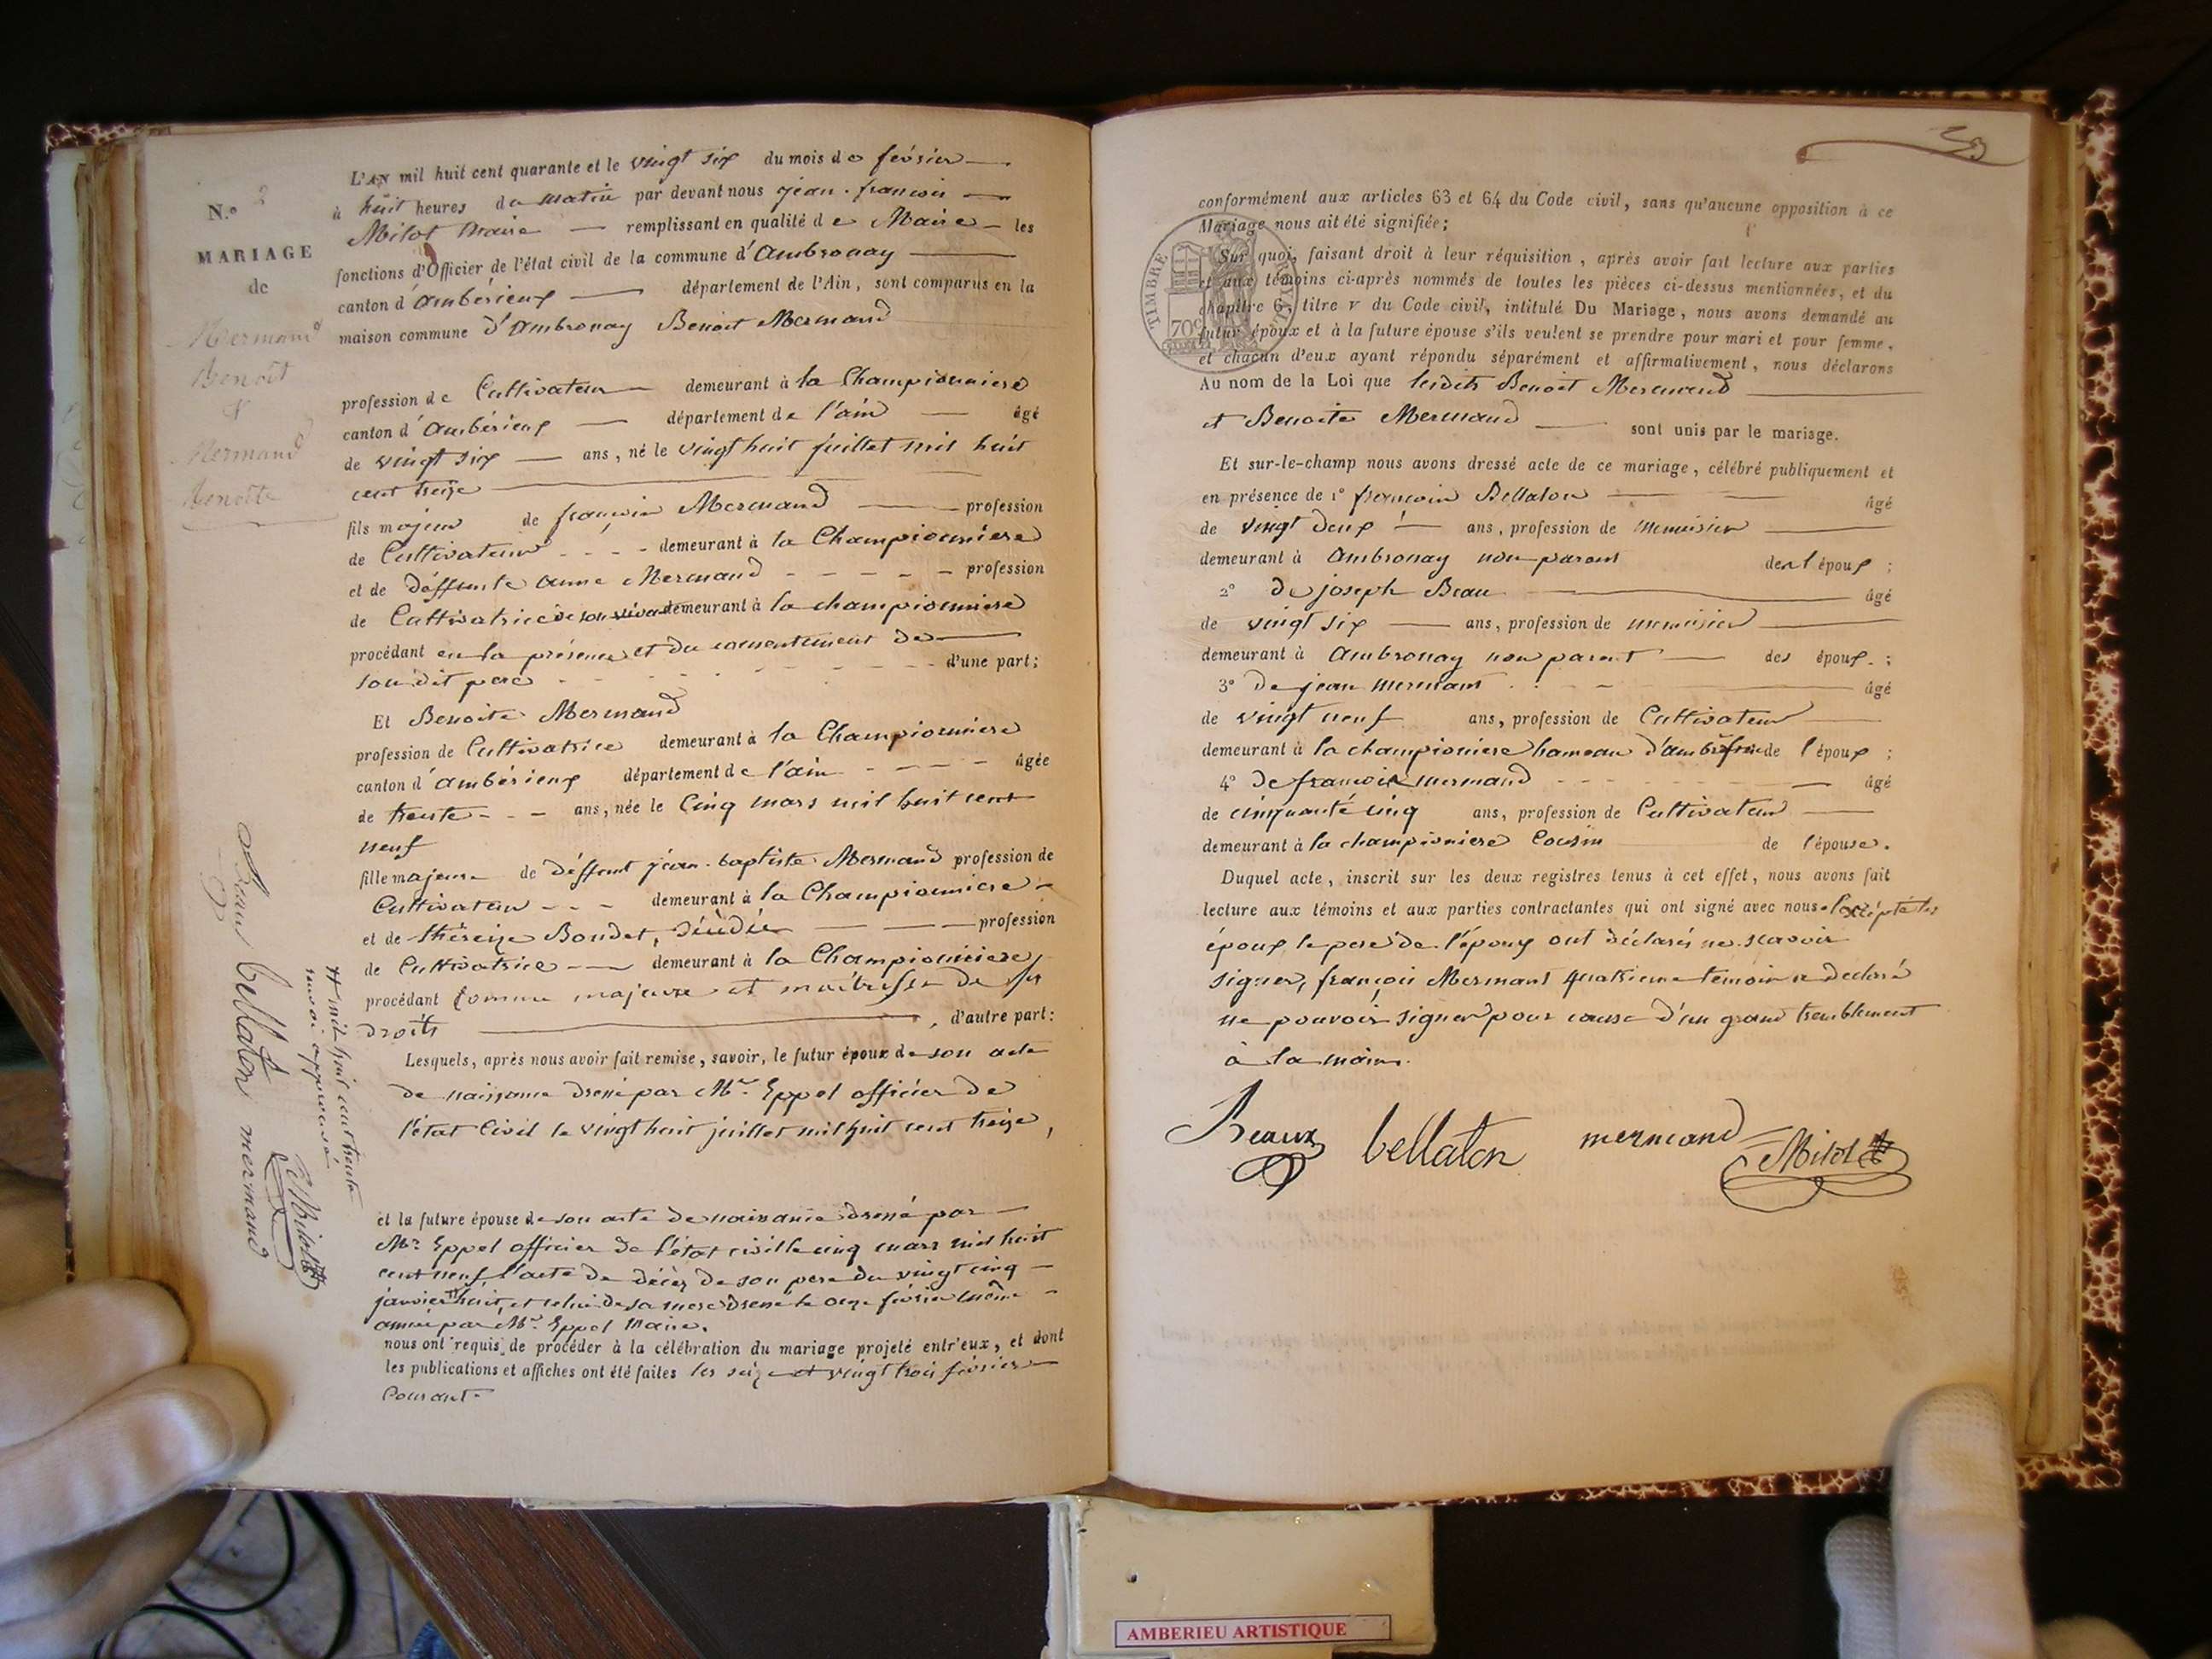 N.º
MARIAGE
de
Mermand
Benoît
&
Mermand
Benoîte
L'AN mil huit cent quarante et le vingt six du mois de février
à huit heures du matin par devant nous jean-françois
Milot Maire remplissant en qualité de Maire les
fonctions d'Officier de l'état civil de la commune d'Ambronay
canton d'ambérieux département de l'Ain, sont comparus en la
maison commune d'Ambronay Benoit Mermand
profession de Cultivateur demeurant à la Championniere
canton d'ambérieux département de l'ain âgé
de vingt six ans, né le vingt huit juillet mil huit
cent treize
fils majeur de françois Mermand profession
de Cultivateur demeurant à la Championniere
et de déffunte anne Mermand profession
de Cultivatrice de son vivant demeurant à la championniere
procédant en la présence et du consentement de
son dit pere d'une part;
Et Benoite Mermand
profession de Cultivatrice demeurant à la Championniere
canton d'ambérieux département de l'ain âgée
de trente ans, née le Cinq mars mil huit cent
neuf
fille majeure de déffunt jéan-baptiste Mermand profession de
Cultivateur demeurant à la Championniere
et de théreize Bondet, décédée profession
de Cultivatrice demeurant à la Championiere,
procédant comme majeure et maitresse de ses
droits , d'autre part:
Lesquels, après nous avoir fait remise, savoir, le futur époux de son acte
de naissance dressé par Mr. Eppel officier de
l'état Civil le vingt huit juillet mil huit cent treize,
et la future épouse de son acte de naissance dressé par
Mr. Eppel officier de l'état civil le cinq mars mil huit
cent neuf, l'acte de décès de son pere du vingt cinq
janvier # huit, et celui de sa mere dressé le onze février même
année par Mr. Eppel Maire.
nous ont requis de procéder à la célébration du mariage projeté entr'eux, et dont
les publications et affiches ont été faites les seize et vingt trois février
Courant.
# mil huit cent trente
renvoi approuvé
Beaux bellaton mermand
Milot
conformément aux articles 63 et 64 du Code civil, sans qu'aucune opposition à ce
Mariage nous ait été signifiée;
TIMBRE ROYAL
70c
Sur quoi, faisant droit à leur réquisition, après avoir fait lecture aux parties
et aux témoins ci-après nommés de toutes les pièces ci-dessus mentionnées, et du
chapitre 6, titre v du Code civil, intitulé Du Mariage, nous avons demandé au
futur époux et à la future épouse s'ils veulent se prendre pour mari et pour femme,
et chacun d'eux ayant répondu séparément et affirmativement, nous déclarons
Au nom de la Loi que lesdits Benoit Mermand
et Benoite Mermand sont unis par le mariage.
Et sur-le-champ nous avons dressé acte de ce mariage, célébré publiquement et
en présence de 1º françois Bellaton âgé
de vingt deux ans, profession de menuisier
demeurant à Ambronay non parent de l'époux;
2º de joseph Beau âgé
de vingt six ans, profession de menuisier
demeurant à Ambronay non parent des époux;
3º de jean mermant âgé
de vingt neuf ans, profession de Cultivateur
demeurant à la championiere hameau d'amb de l'époux;
4º de françois mermand âgé
de cinquante cinq ans, profession de Cultivateur
demeurant à la championiere Cousin de l'épouse.
Duquel acte, inscrit sur les deux registres tenus à cet effet, nous avons fait
lecture aux témoins et aux parties contractantes qui ont signé avec nous excépté les
époux le pere de l'époux ont déclaré ne scavoir
signer, françois Mermant quatrieme temoin a declaré
ne pouvoir signer pour cause d'un grand tremblement
à la main.
Beaux bellaton mermand Milot
AMBERIEU ARTISTIQUE